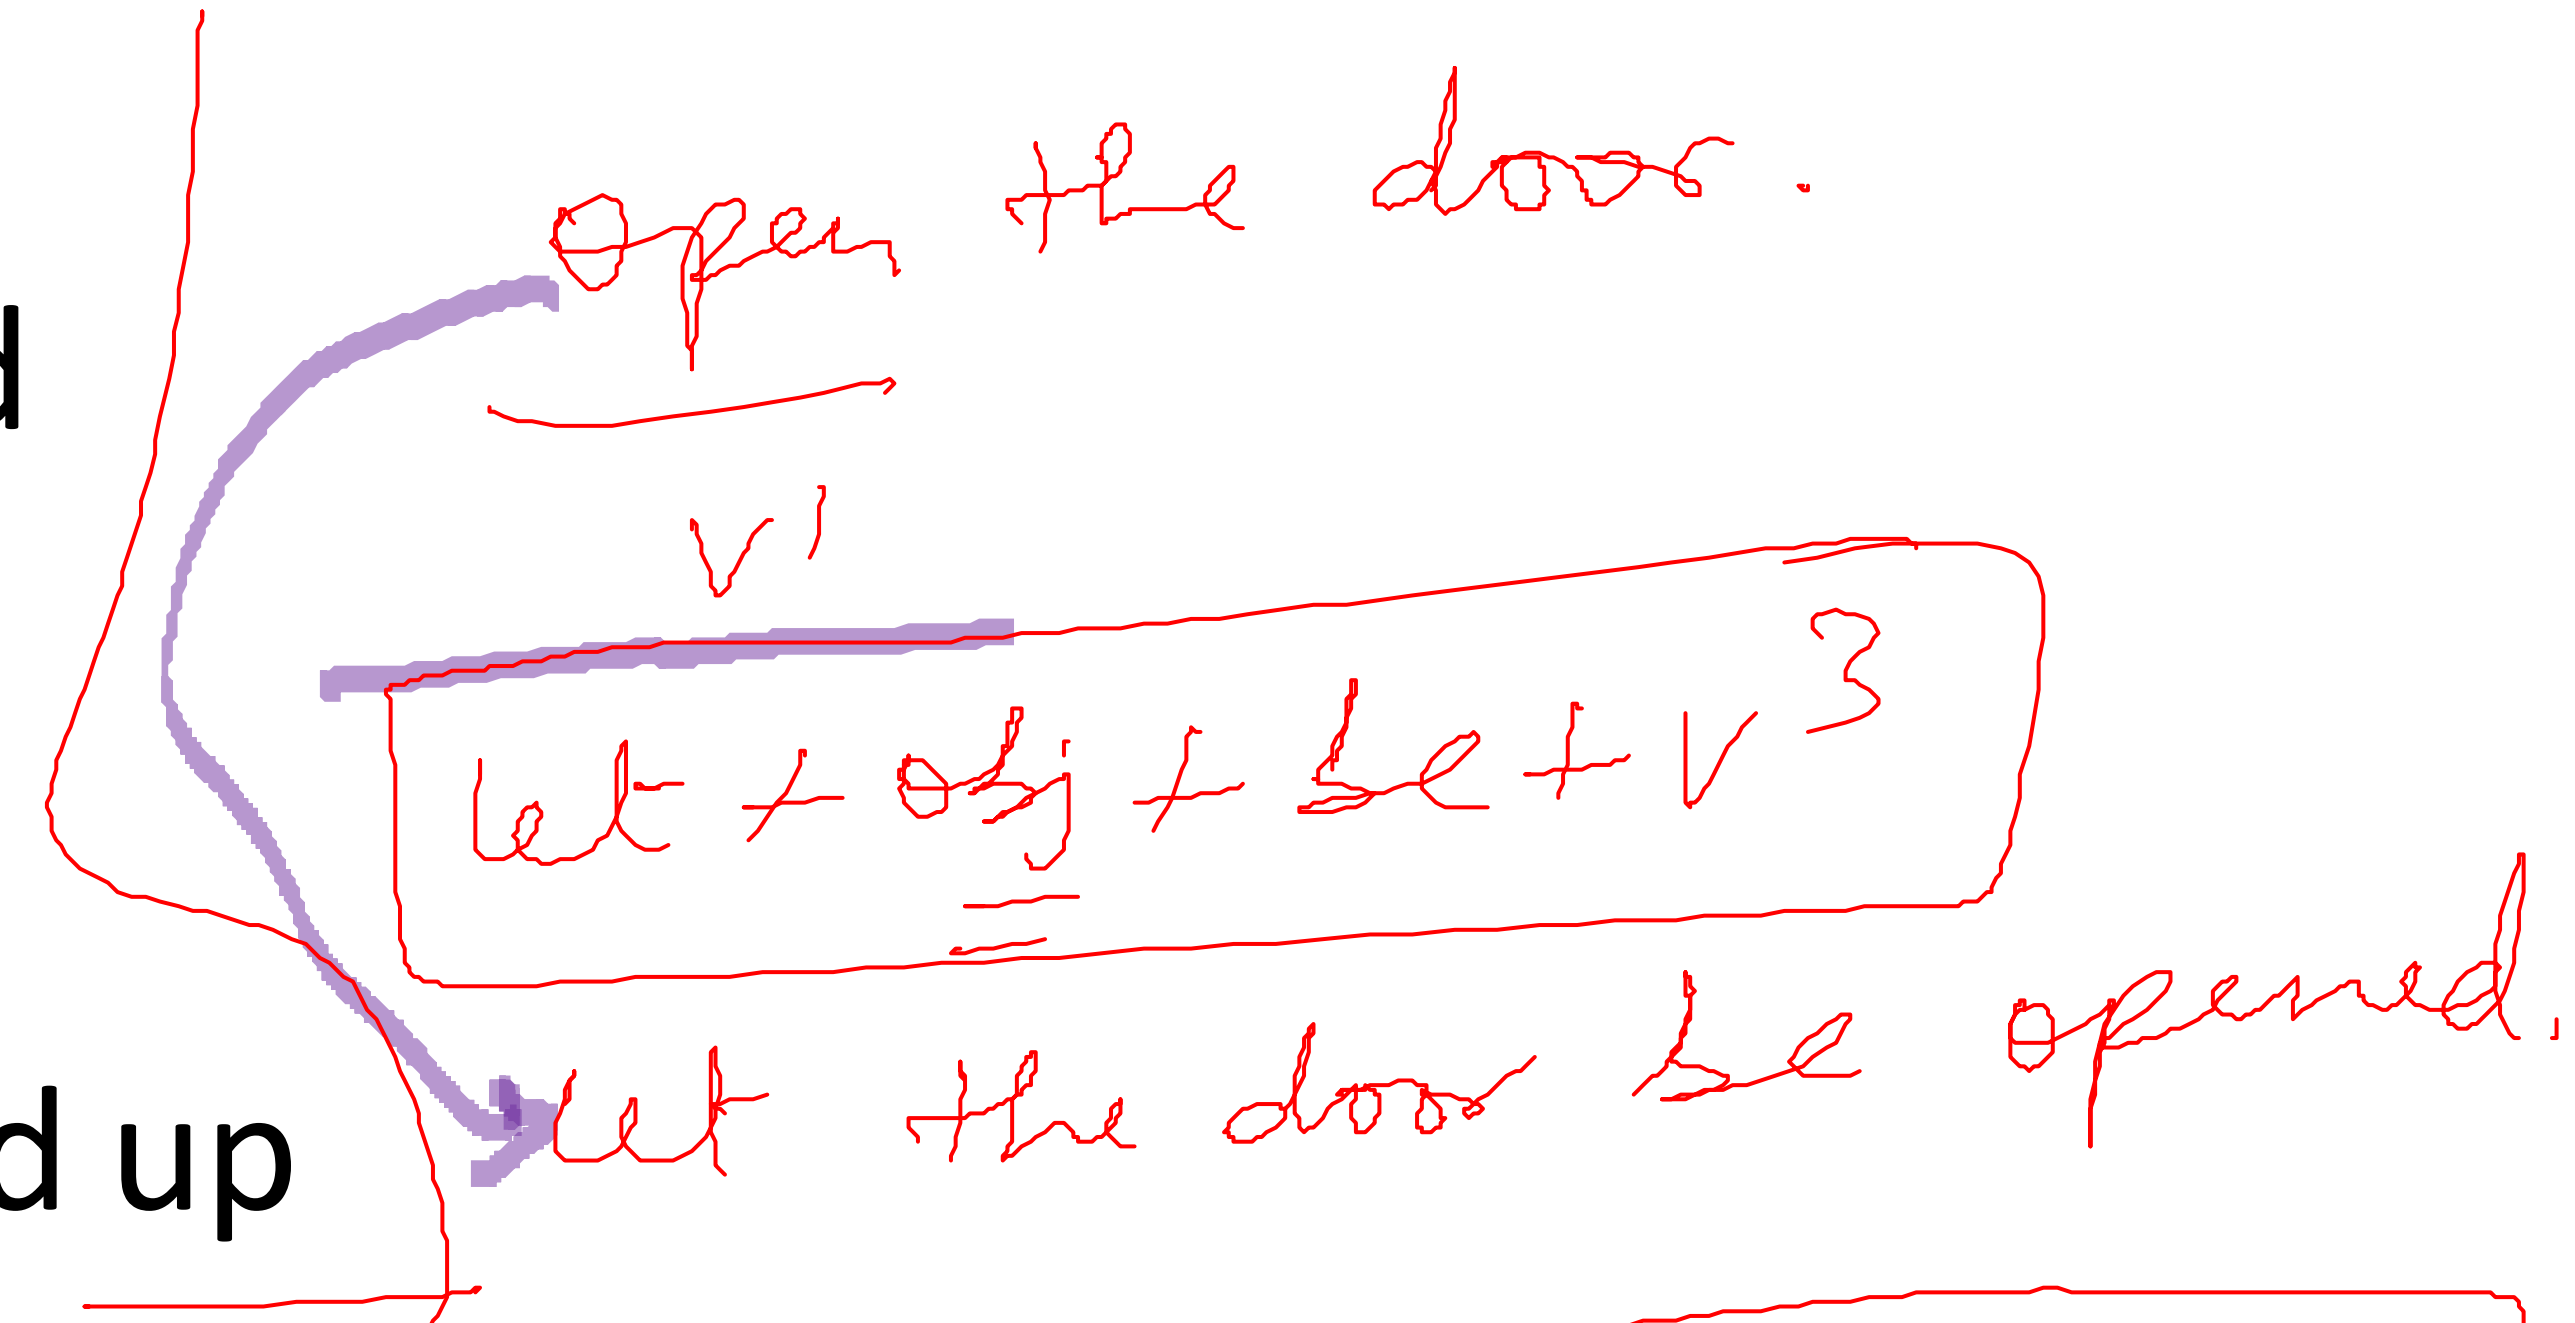 open the door.
d
V1
let + obj + be + V3
let the door be opened.
d up